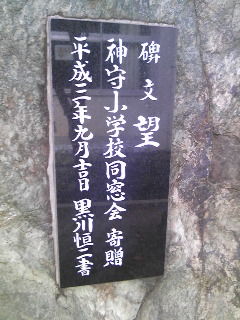 碑文望
神守小学校同窓会 寄贈
平成三年九月吉日 黒川恒二書